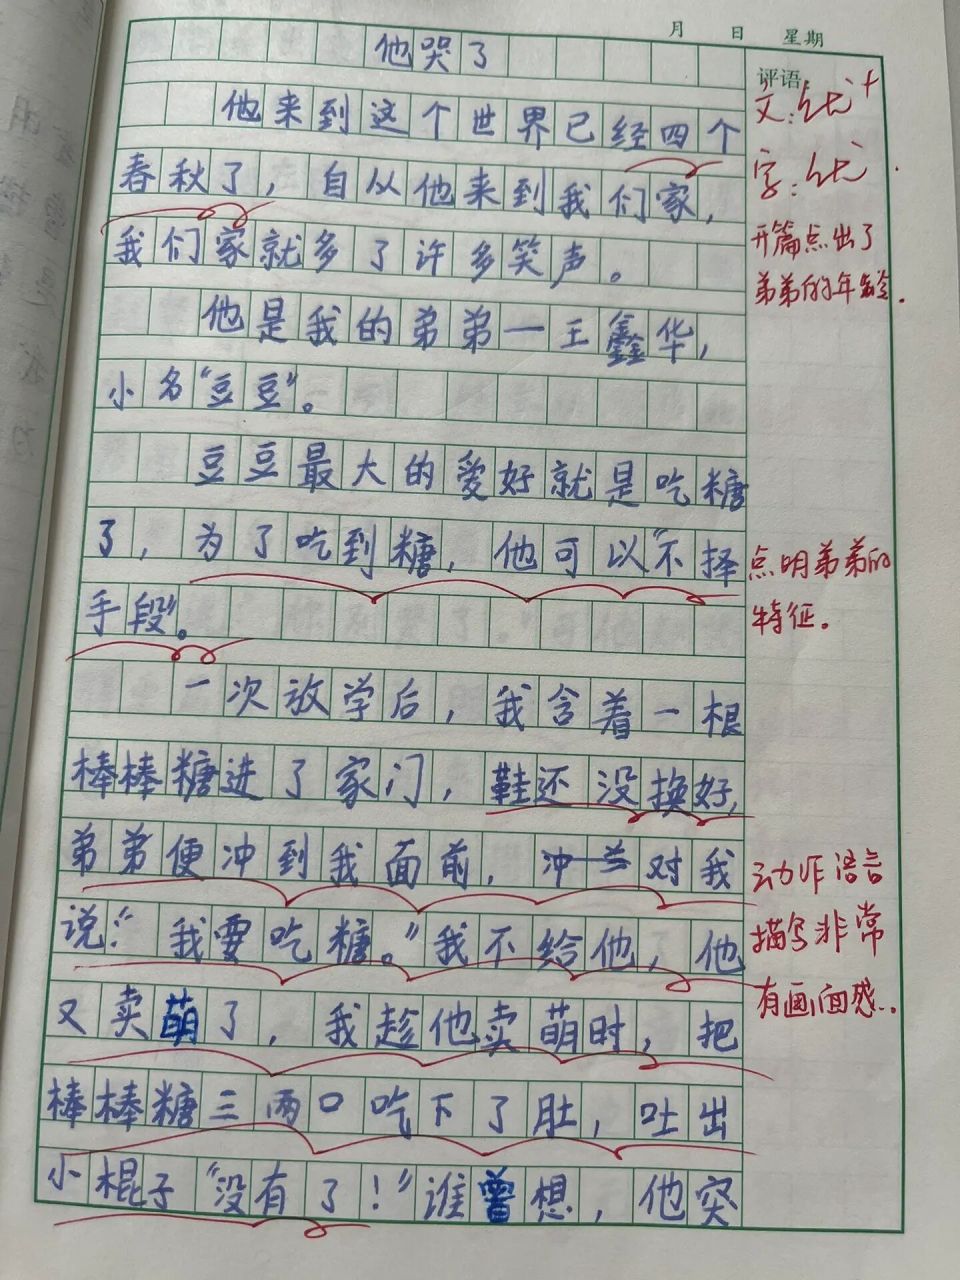 月 日 星期
他哭了
评语:
文:优+
他来到这个世界已经四个
字:优
春秋了，自从他来到我们家，
开篇点出了
我们家就多了许多笑声。
弟弟的年龄.
他是我的弟弟一王鑫华，
小名“豆豆”。
豆豆最大的爱好就是吃糖
了，为了吃到糖，他可以“不择
点明弟弟的
手段”。
特征.
一次放学后，我含着一根
棒棒糖进了家门，鞋还没换好，
弟弟便冲到我面前，对我
动作语言
说：“我要吃糖。”我不给他，他
描写非常
有画面感..
又卖萌了，我趁他卖萌时，把
棒棒糖三两口吃下了肚，吐出
小棍子“没有了！”谁曾想，他突